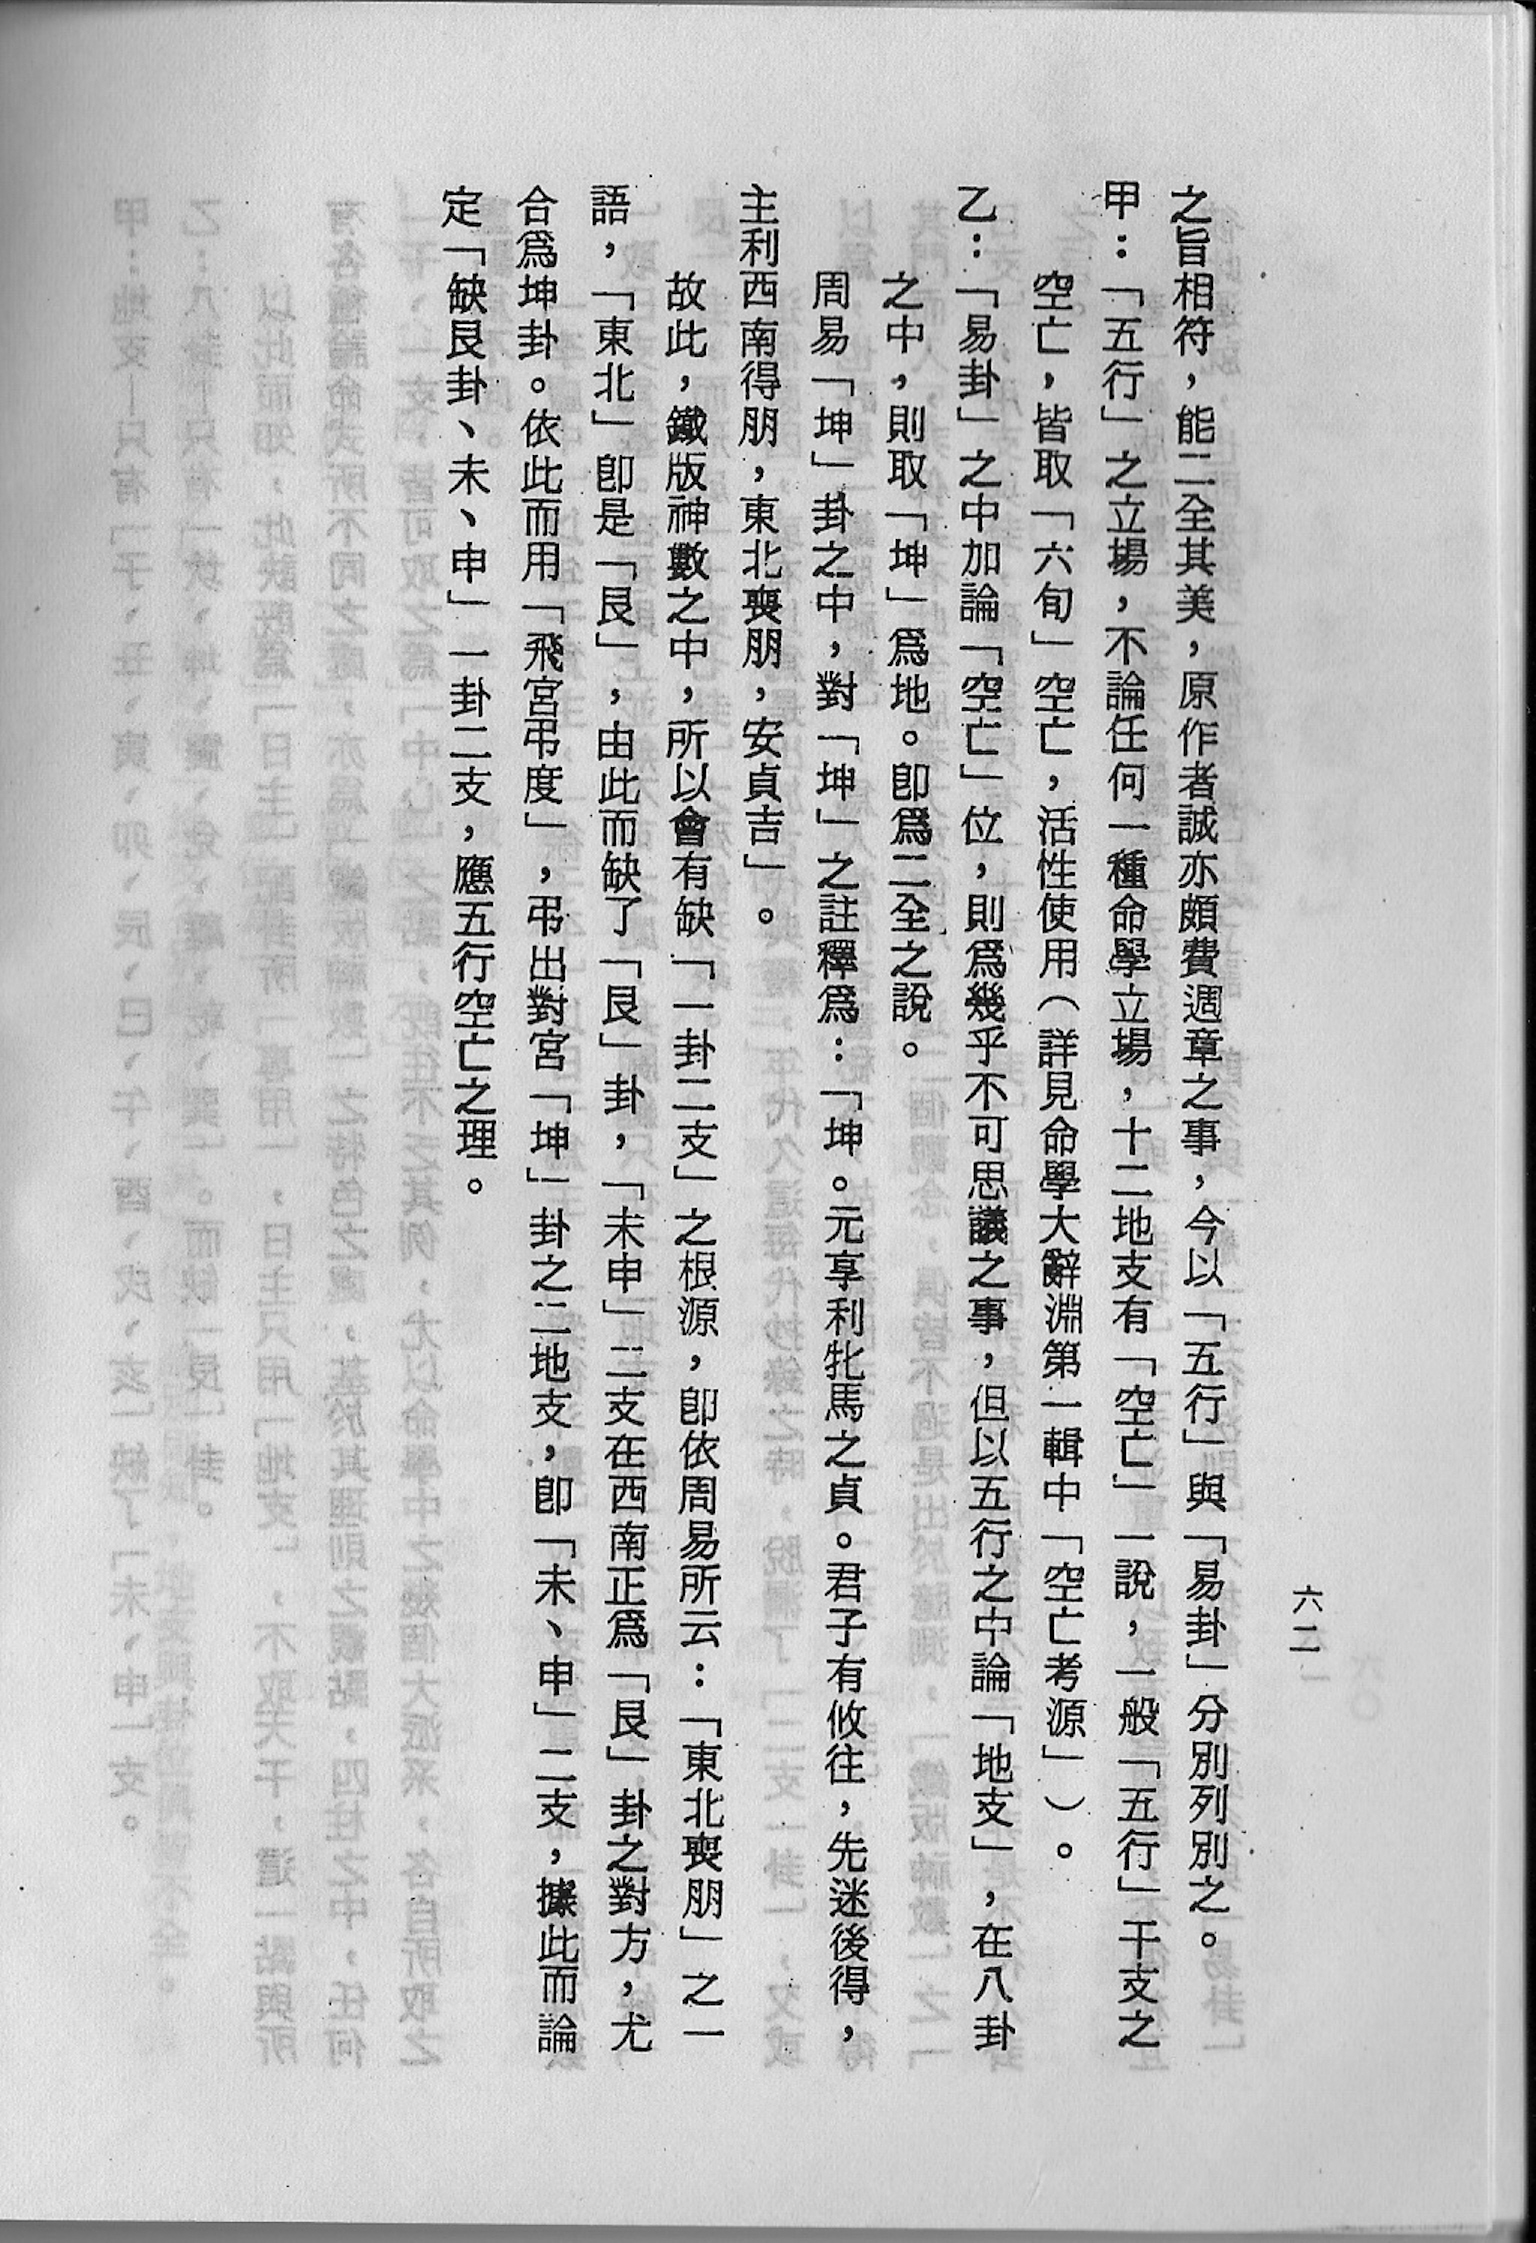 六二
之旨相符，能二全其美，原作者誠亦頗費週章之事，今以「五行」與「易卦」分別列別之。
甲：「五行」之立場，不論任何一種命學立場，十二地支有「空亡」一說，一般「五行」干支之
空亡，皆取「六旬」空亡，活性使用（詳見命學大辭淵第一輯中「空亡考源」）。
乙：「易卦」之中加論「空亡」位，則爲幾乎不可思議之事，但以五行之中論「地支」，在八卦
之中，則取「坤」爲地。卽爲二全之說。
周易「坤」卦之中，對「坤」之註釋爲：「坤。元享利牝馬之貞。君子有攸往，先迷後得，
主利西南得朋，東北喪朋，安貞吉」。
故此，鐵版神數之中，所以會有缺「一卦二支」之根源，卽依周易所云：「東北喪朋」之一
語，「東北」卽是「艮」，由此而缺了「艮」卦，「未申」二支在西南正爲「艮」卦之對方，尤
合爲坤卦。依此而用「飛宮弔度」，弔出對宮「坤」卦之二地支，卽「未、申」二支，據此而論
定「缺艮卦、未、申」一卦二支，應五行空亡之理。